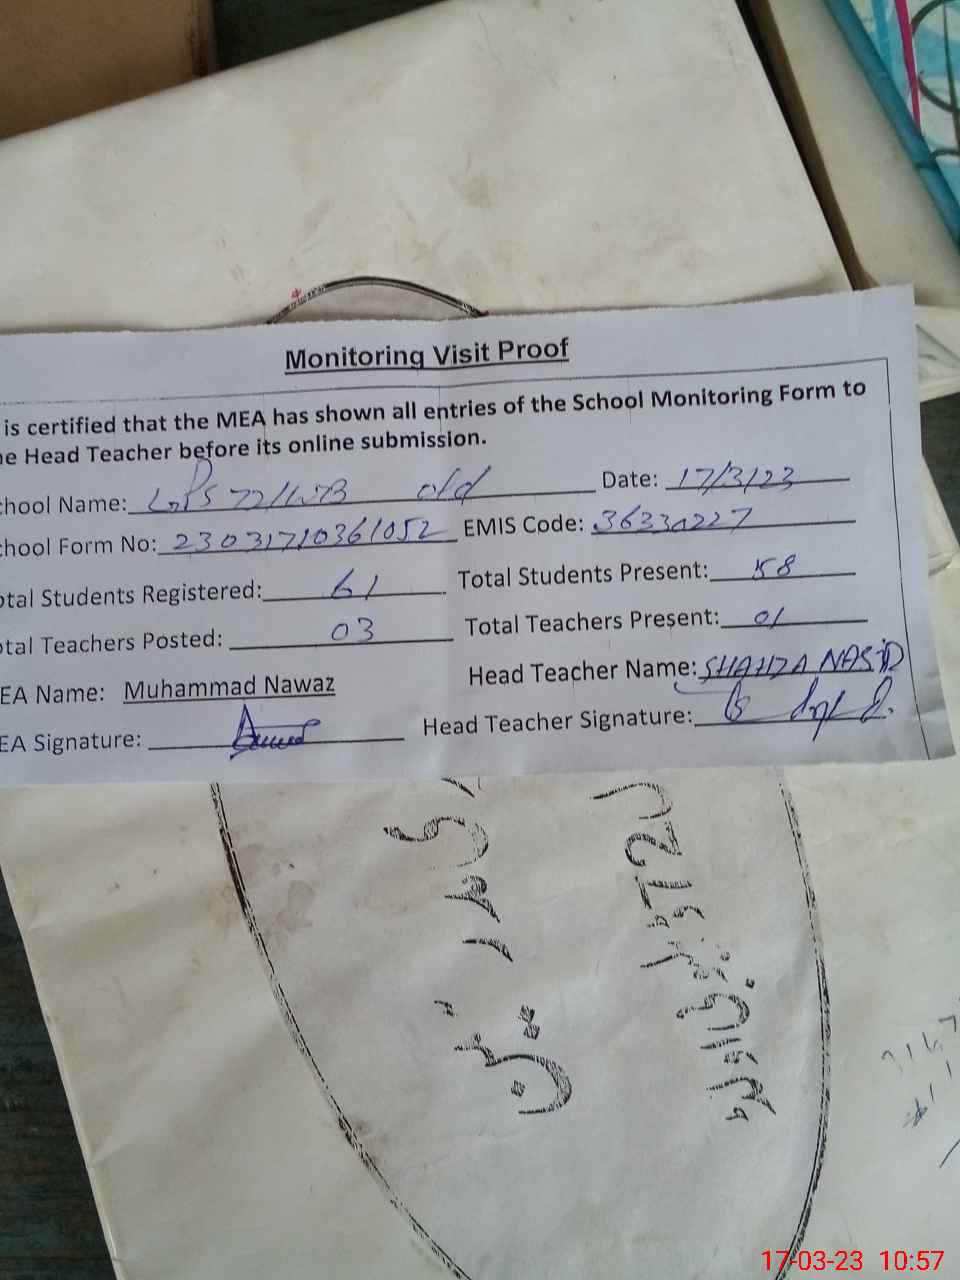 Monitoring Visit Proof
is certified that the MEA has shown all entries of the School Monitoring Form to
he Head Teacher before its online submission.
chool Name: GPS 72/WB old Date: 17/3/23
chool Form No: 23031710361052 EMIS Code: 36330227
otal Students Registered: 61 Total Students Present: 58
otal Teachers Posted: 03 Total Teachers Present: 01
EA Name: Muhammad Nawaz Head Teacher Name: SHAHZA NASIR
EA Signature: Head Teacher Signature:
17-03-23 10:57